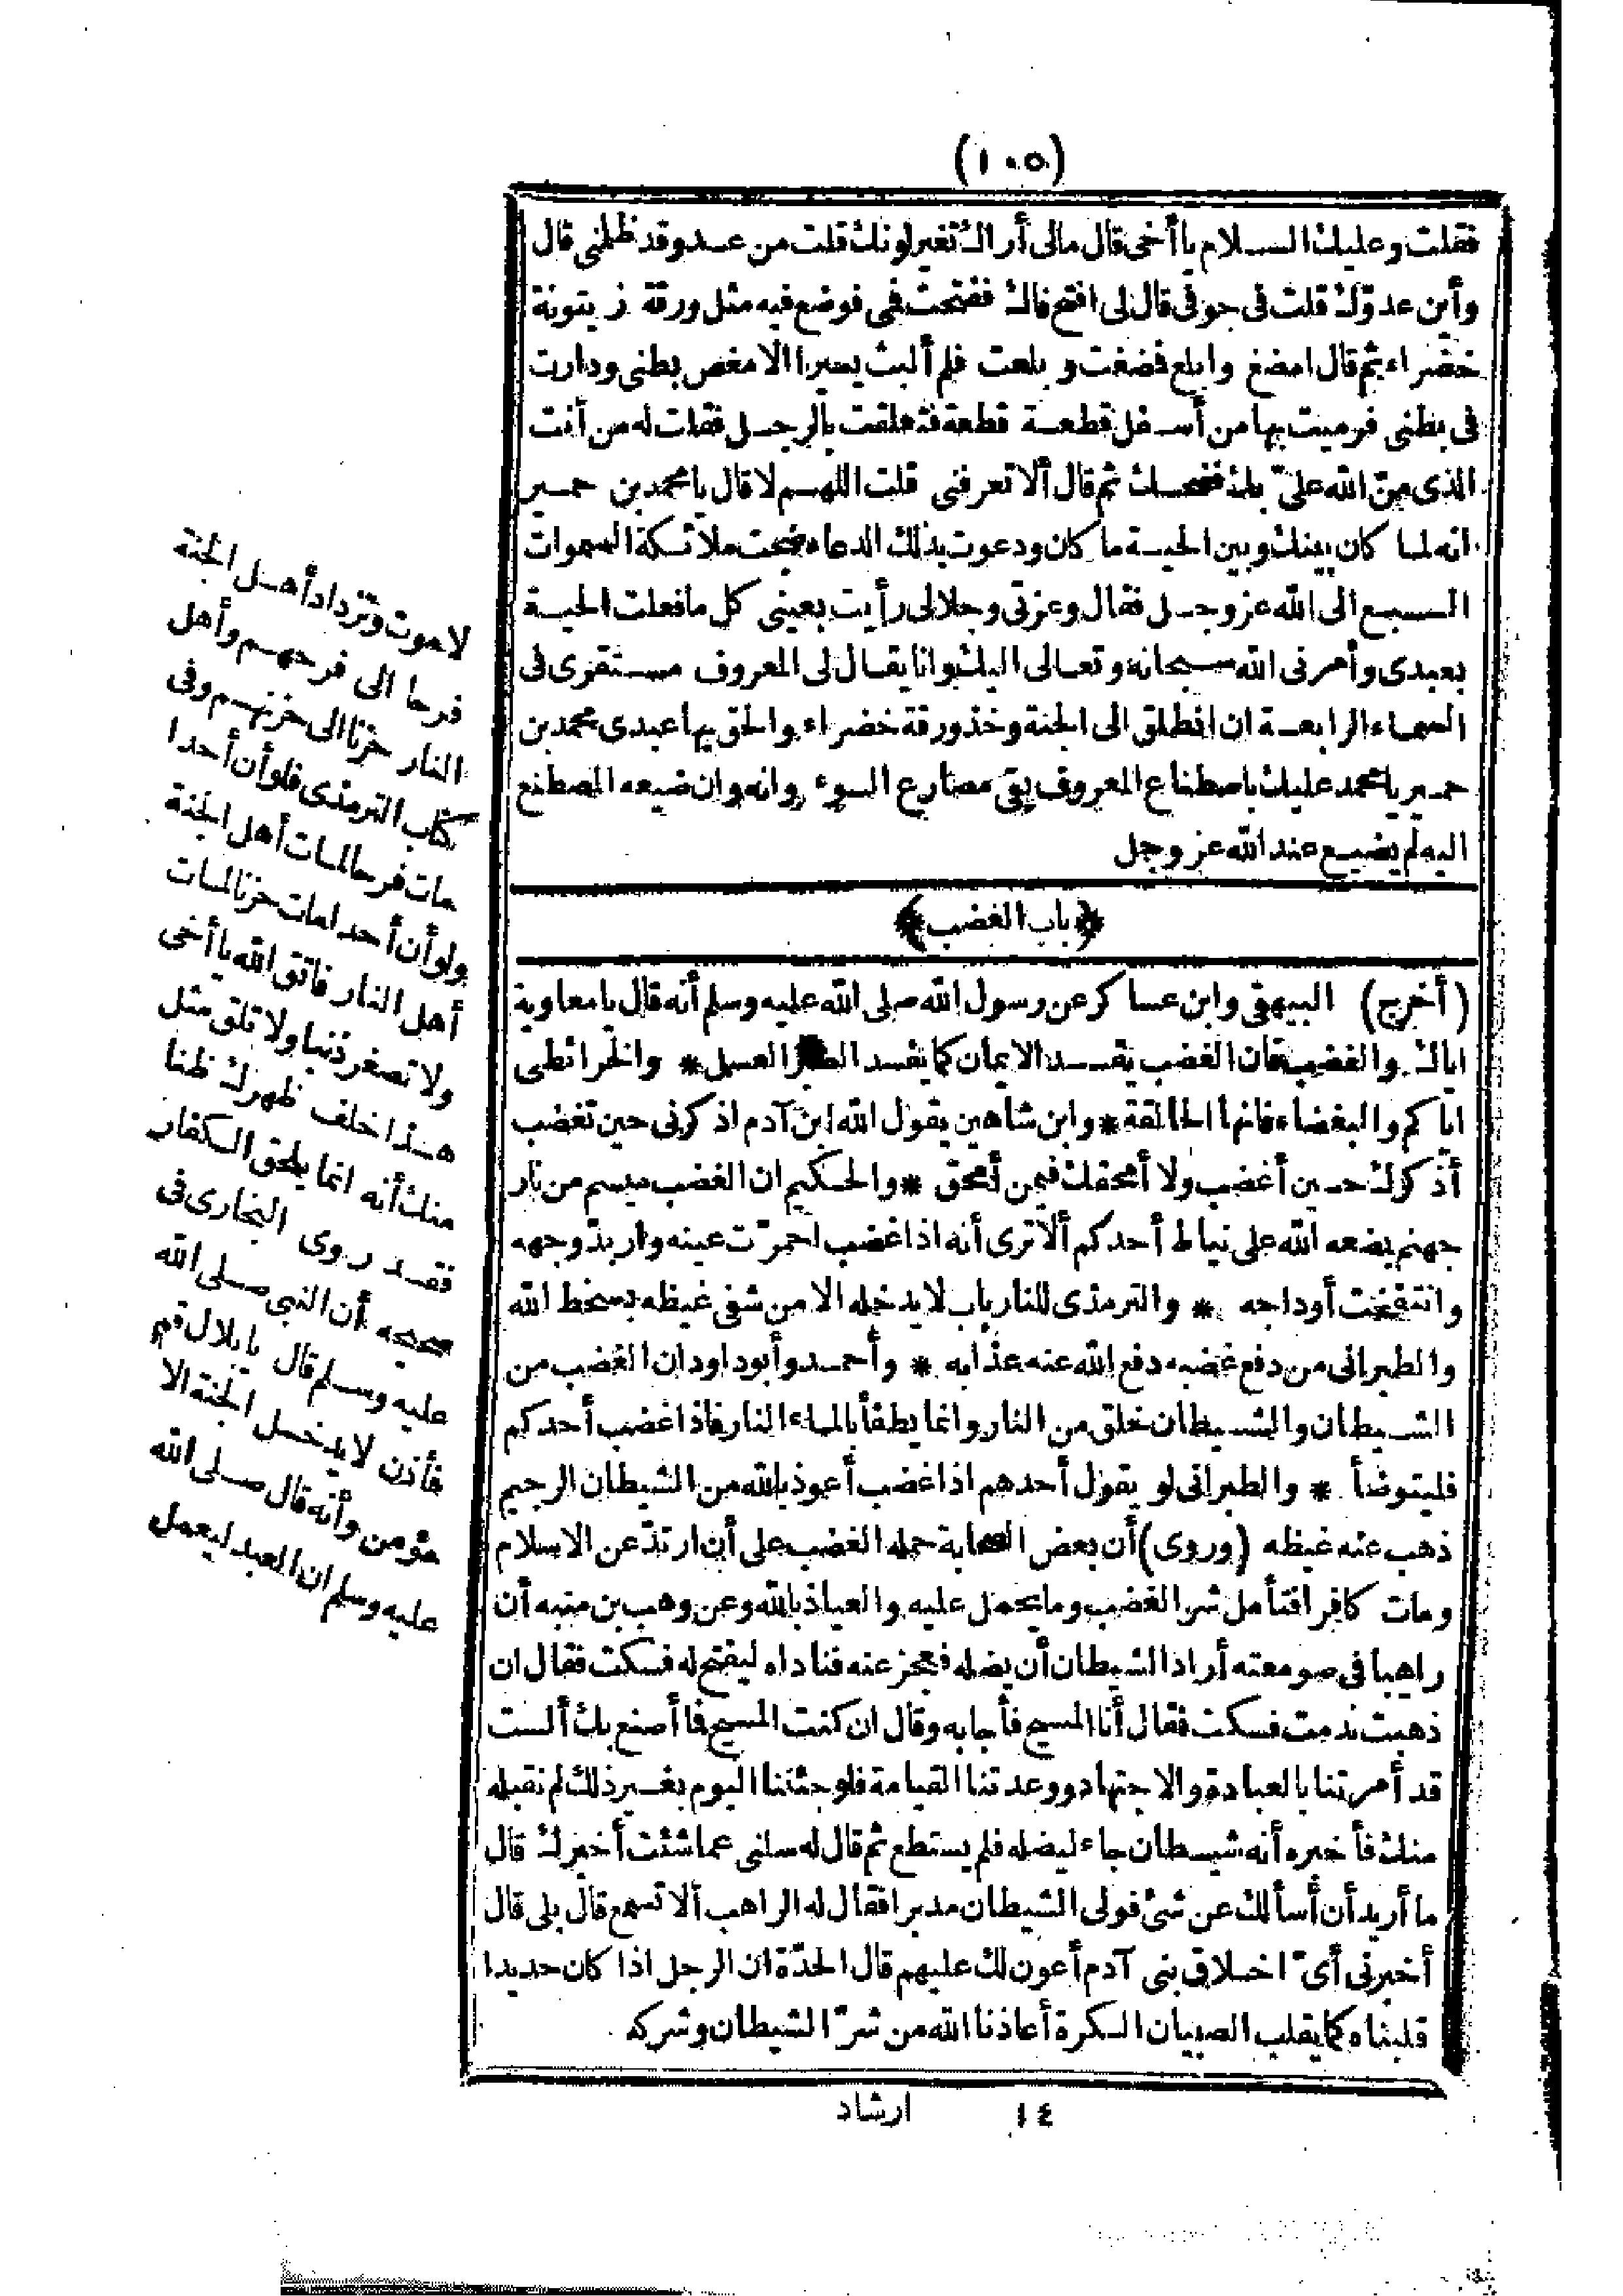 (١٠٥)
فقلت وعليك السلام يا أخى قال مالى أراك تغير لونك قلت من عدو قد ظلمنى قال
وأين عدوّك قلت فى جوفى قال لى افتح فاك ففتحت فمى فوضع فيه مثل ورقة زيتونة
خضراء ثم قال امضغ وابلع فضغت وبلعت فلم ألبث يسيرا الا مغص بطنى ودارت
فى بطنى فرميت بها من أسفل قطعة قطعة فتعلقت بالرجل فقلت له من أنت
الذى منّ الله علىّ بك فضحك ثم قال ألا تعرفنى قلت اللهم لا قال يا محمد بن حمير
انه لما كان بينك وبين الحية ما كان ودعوت بذلك الدعاء ضجت ملائكة السموات
السبع الى الله عز وجل فقال وعزتى وجلالى رأيت بعينى كل ما فعلت الحية
بعبدى وأمرنى الله سبحانه وتعالى اليك وانا يقال لى المعروف مستقرى فى
السماء الرابعة ان انطلق الى الجنة وخذ ورقة خضراء والحق بها عبدى محمد بن
حمير يا محمد عليك باصطناع المعروف يقى مصارع السوء وانه وان ضيعه المصطنع
اليه لم يضيع عند الله عز وجل
﴿باب الغضب﴾
(أخرج) البيهقى وابن عساكر عن رسول الله صلى الله عليه وسلم أنه قال يا معاوية
اياك والغضب فان الغضب يفسد الايمان كما يفسد العسل * والخرائطى
اياكم والبغضاء فانها الحالقة * وابن شاهين يقول الله ابن آدم اذكرنى حين تغضب
أذكرك حين أغضب ولا أمحقك فيمن أمحق * والحكيم ان الغضب ميسم من نار
جهنم يضعه الله على نياط أحدكم ألا ترى أنه اذا غضب احمرّت عينه واربدّ وجهه
وانتفخت أوداجه * والترمذى للنار باب لا يدخله الا من شفى غيظه بسخط الله
والطبرانى من دفع غضبه دفع الله عنه عذابه * وأحمد وأبو داود ان الغضب من
الشيطان والشيطان خلق من النار وانما يطفأ بالماء النار فاذا غضب أحدكم
فليتوضأ * والطبرانى لو يقول أحدهم اذا غضب أعوذ بالله من الشيطان الرجيم
ذهب عنه غيظه (وروى) أن بعض الصحابة حمله الغضب على أن ارتدّ عن الاسلام
ومات كافرا فتأمل شر الغضب وما يحمل عليه والعياذ بالله وعن وهب بن منبه أن
راهبا فى صومعته أراد الشيطان أن يضله فعجز عنه فناداه ليفتح له فسكت فقال ان
ذهبت ندمت فسكت فقال أنا المسيح فأجابه وقال ان كنت المسيح فما أصنع بك ألست
قد أمرتنا بالعبادة والاجتهاد ووعدتنا القيامة فلو جئتنا اليوم بغير ذلك لم نقبله
منك فأخبره أنه شيطان جاء ليضله فلم يستطع ثم قال له سلنى عما شئت أخبرك قال
ما أريد أن أسألك عن شئ فولى الشيطان مدبرا فقال له الراهب ألا تسمع قال بلى قال
أخبرنى أىّ اخلاق بنى آدم أعون لك عليهم قال الحدّة ان الرجل اذا كان حديدا
قلبناه كما يقلب الصبيان الكرة أعاذنا الله من شرّ الشيطان وشركه
لا موت وتزداد أهل الجنة
فرحا الى فرحهم وأهل
النار حزنا الى حزنهم وفى
كتاب الترمذى فلو أن أحدا
مات فرحا لمات أهل الجنة
ولو أن أحدا مات حزنا لمات
أهل النار فاتق الله يا أخى
ولا تصغر ذنبا ولا تلق مثل
هذا خلف ظهرك ظنا
منك أنه انما يلحق الكفار
فقد روى البخارى فى
صحيحه أن النبى صلى الله
عليه وسلم قال يا بلال قم
فأذن لا يدخل الجنة الا
مؤمن وأنه قال صلى الله
عليه وسلم ان العبد ليعمل
١٤ ارشاد